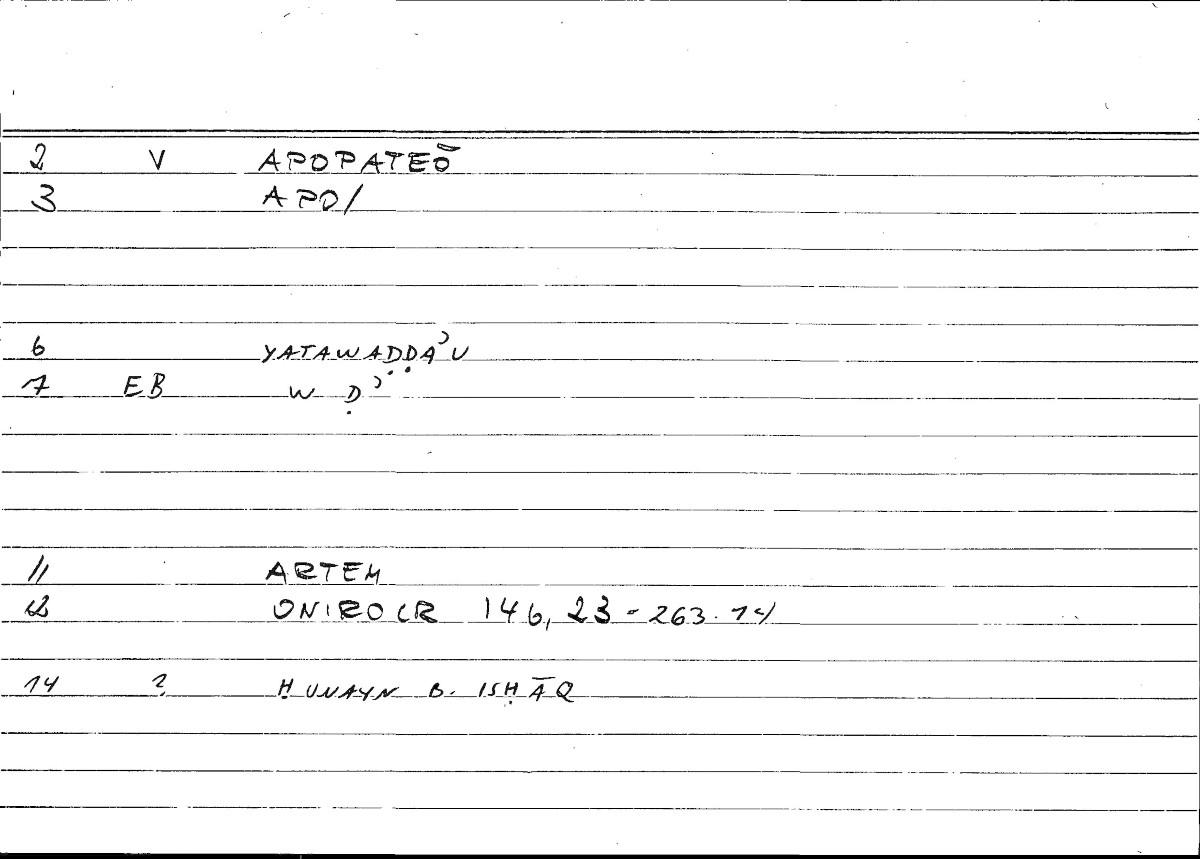 2 V APOPATEŌ
3 APO/
6 YATAWAḌḌAʾU
7 EB W Ḍʾ
11 ARTEM
12 ONIROCR 146, 23 - 263.14
14 ? ḤUNAYN B. ISḤĀQ